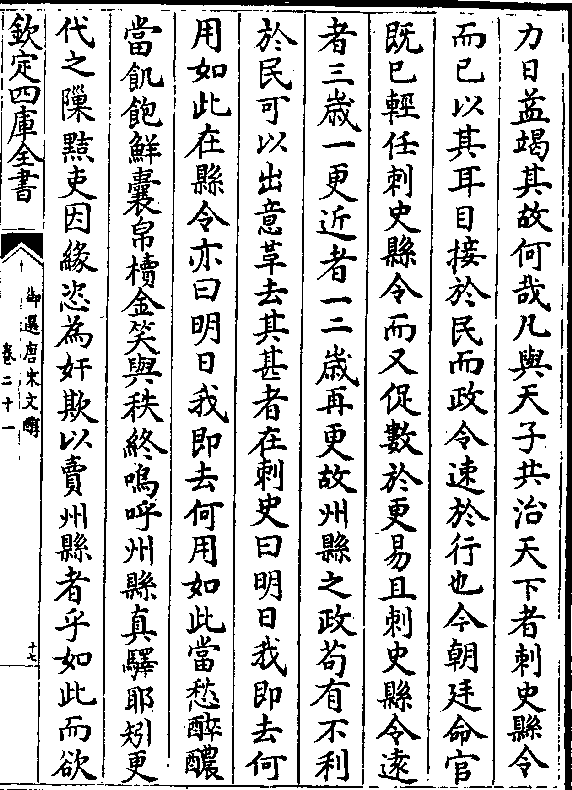 力日益竭其故何哉凡與天子共治天下者刺史縣令
而已以其耳目接於民而政令速於行也今朝廷命官
既已輕任刺史縣令而又促數於更易且刺史縣令逺
者三歳一更近者一二歳再更故州縣之政茍有不利
於民可以出意革去其甚者在刺史曰明日我即去何
用如此在縣令亦曰明日我即去何用如此當愁醉醲
當飢飽鮮囊帛櫝金笑與秩終嗚呼州縣真驛耶矧更
代之隟黠吏因緣恣為奸欺以賣州縣者乎如此而欲
欽定四庫全書
御選唐宋文醇
卷二十一
十七